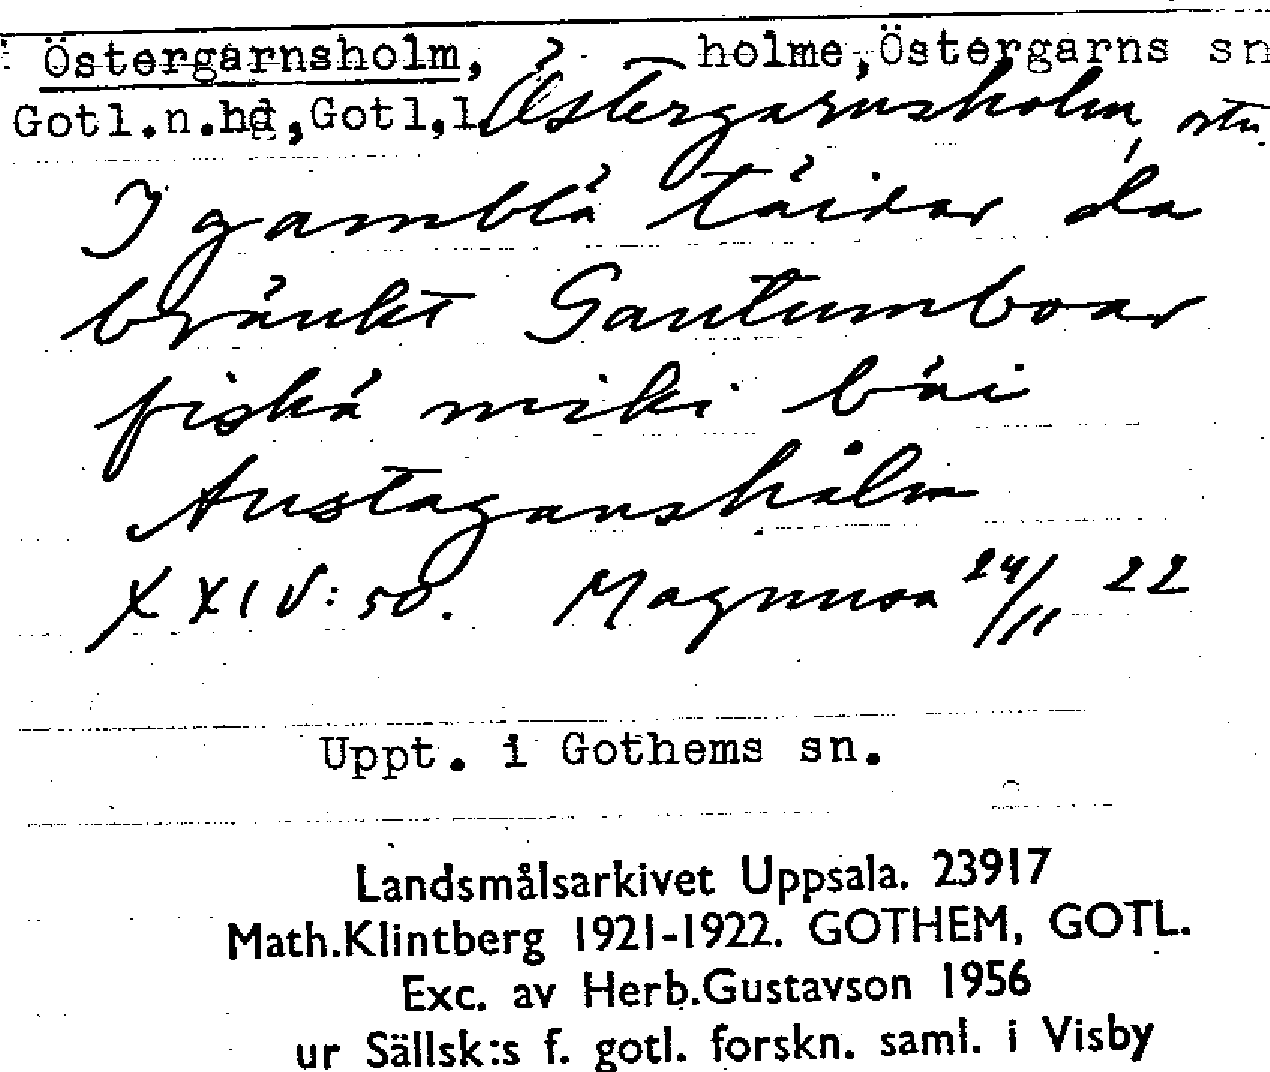 Östergarnsholm, holme, Östergarns sn
Gotl.n.hd, Gotl,l. Östergarnsholm, ortn.
I gamblá táidar da
bránkt Gautumboar
fiská miki bái
Austaganshålm
XXIV:50. Magnusa 24/11 22
Uppt. i Gothems sn.
Landsmålsarkivet Uppsala. 23917
Math.Klintberg 1921-1922. GOTHEM, GOTL.
Exc. av Herb.Gustavson 1956
ur Sällsk:s f. gotl. forskn. saml. i Visby